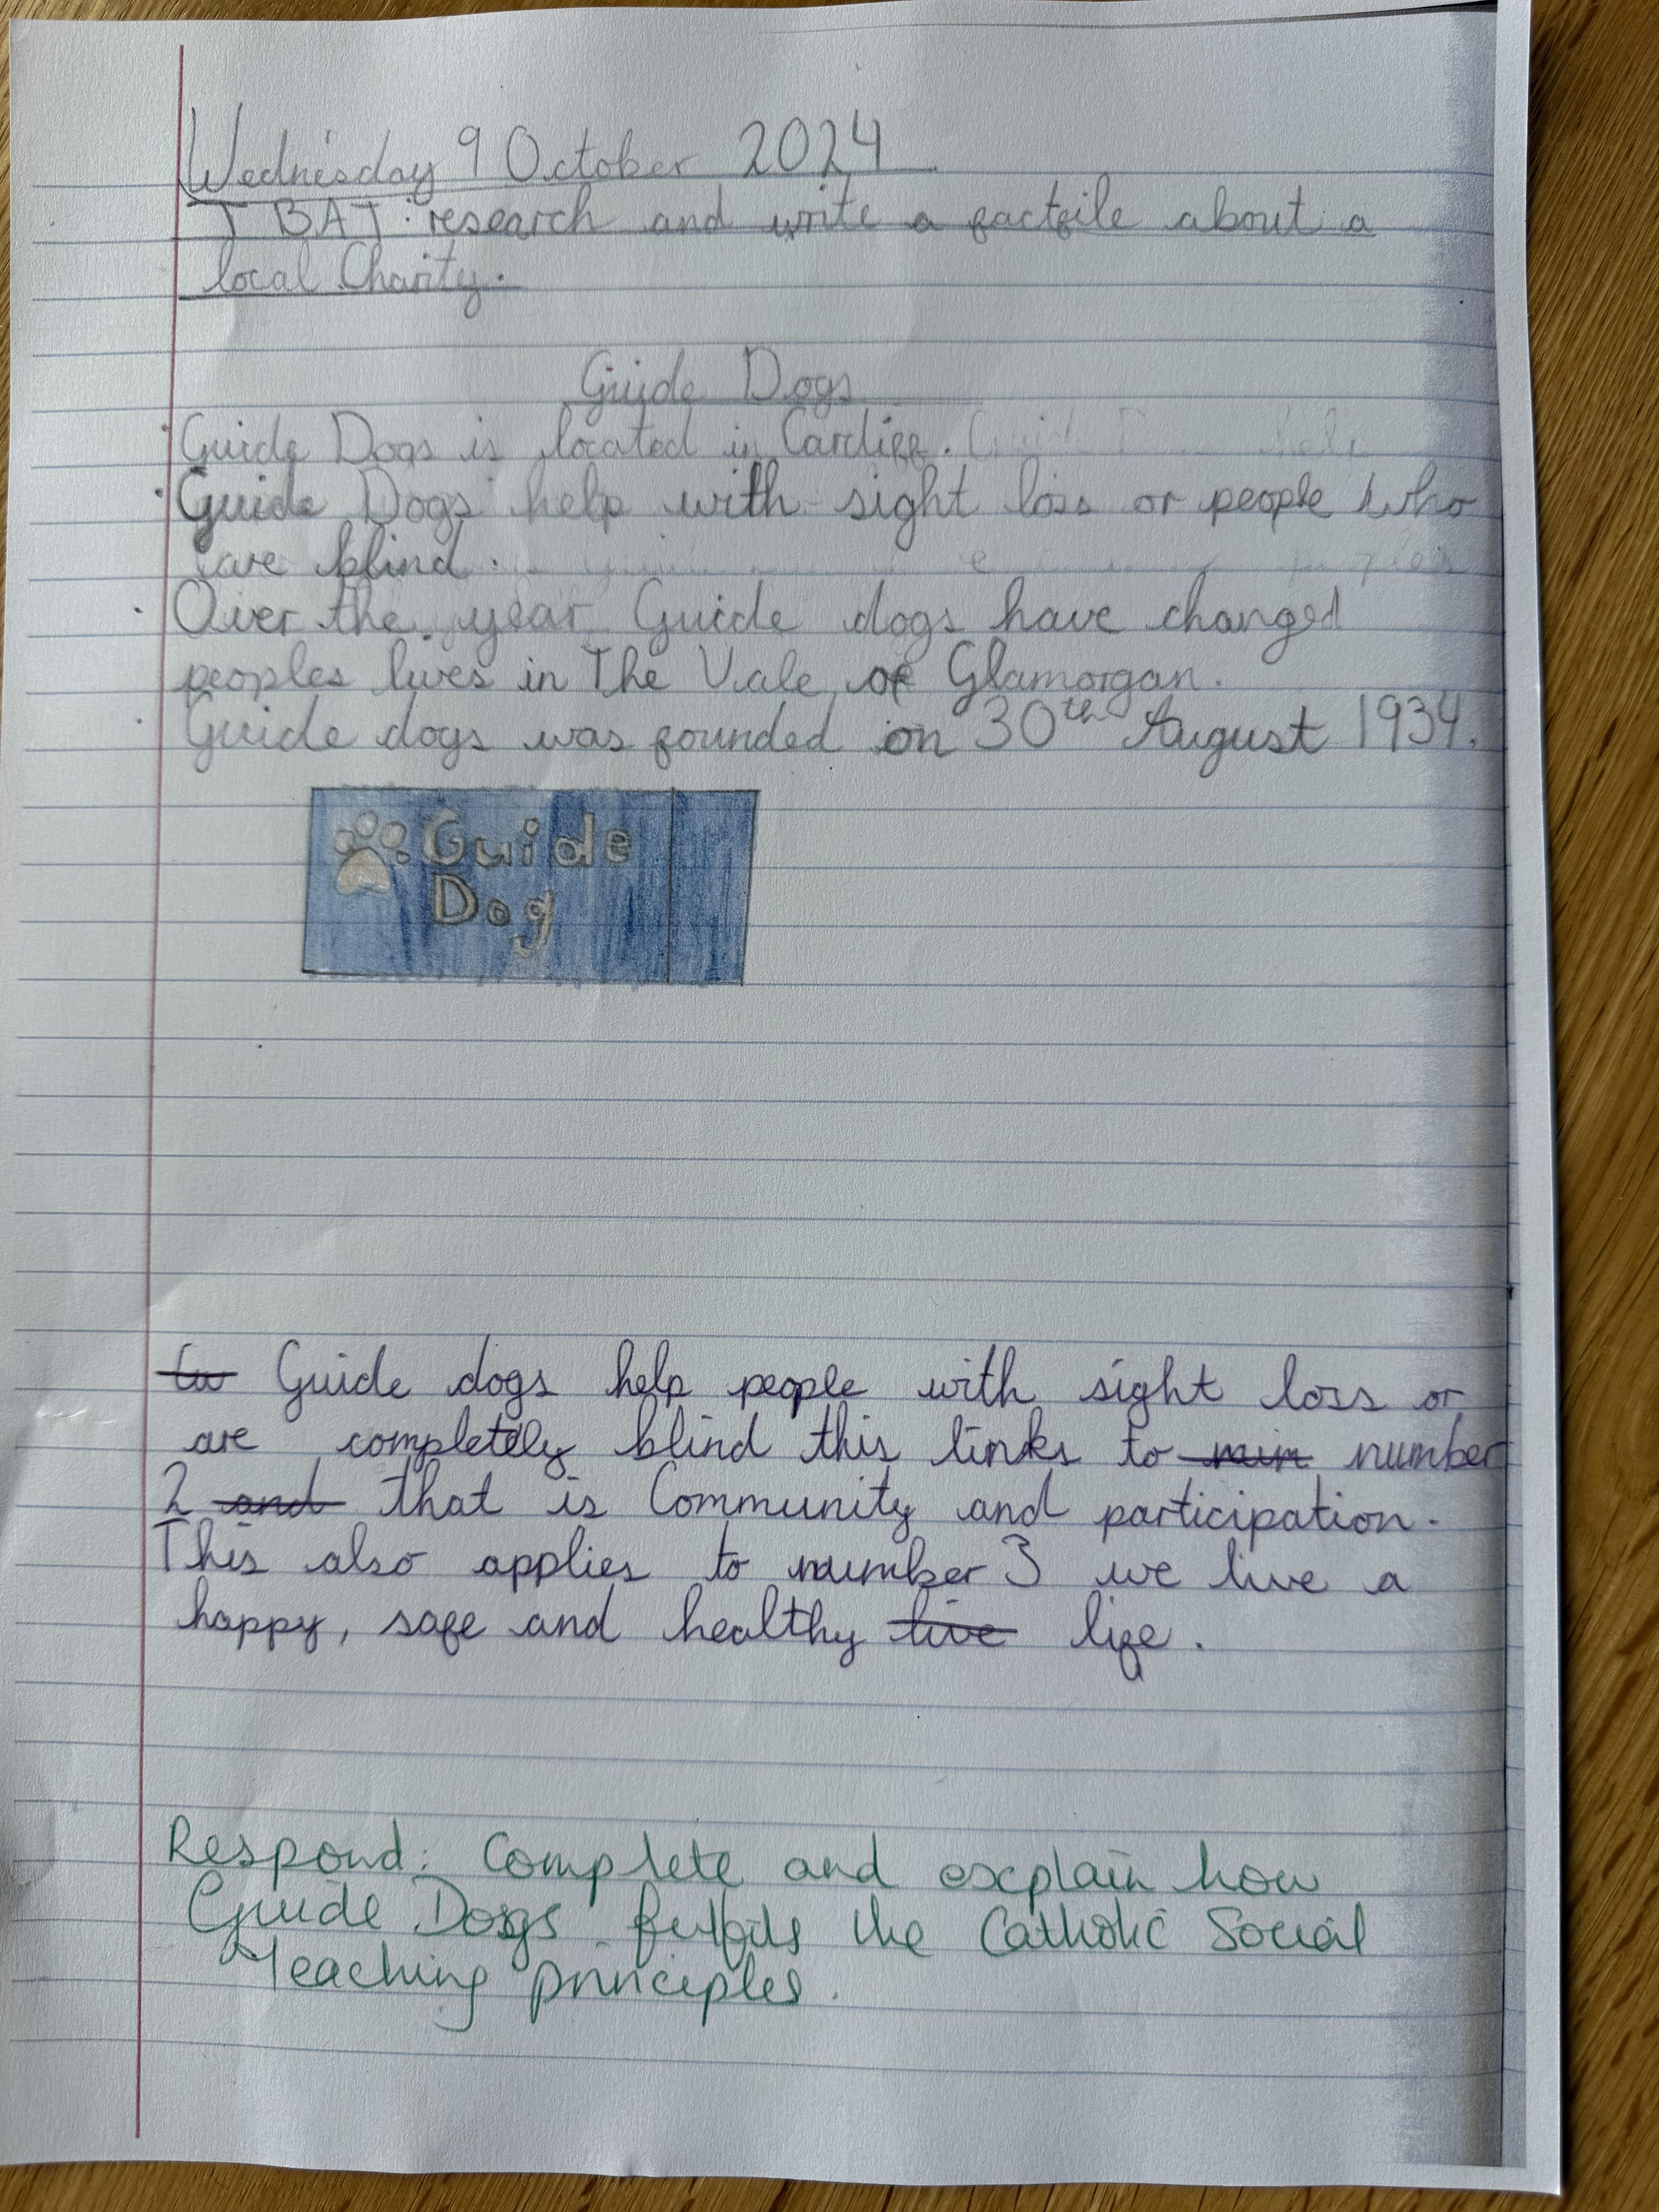 Wednesday 9 October 2024
T BAT: research and write a factfile about a
local Charity.
Guide Dogs
· Guide Dogs is located in Cardiff. help
· Guide Dogs help with sight loss or people who
are blind.
· Over the year Guide dogs have changed
peoples lives in The Vale of Glamorgan.
· Guide dogs was founded on 30th August 1934.
Guide
Dog
Guide dogs help people with sight loss or
are completely blind this links to number
2 and that is Community and participation.
This also applies to number 3 we live a
happy, safe and healthy live life.
Respond: Complete and explain how
Guide Dogs fulfils the Catholic Social
Teaching principles.